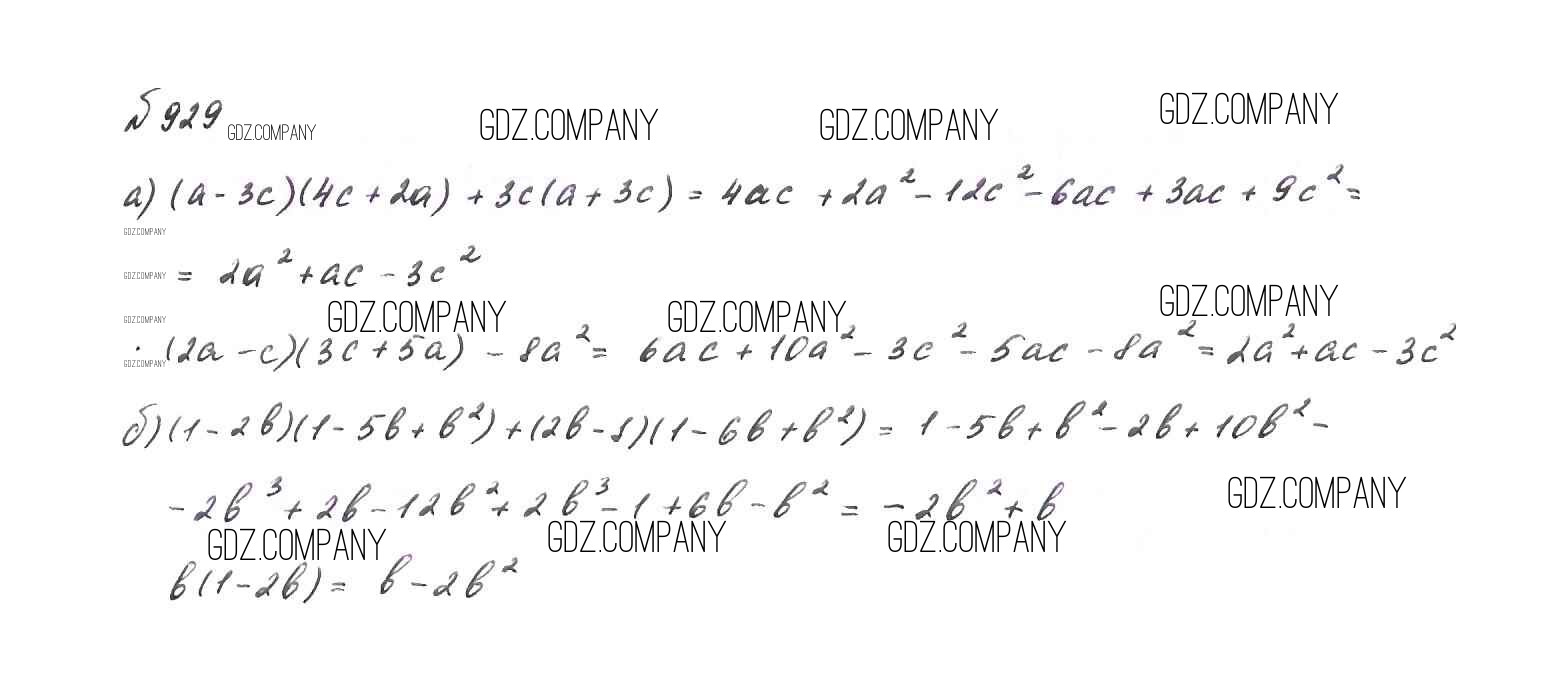 № 929
GDZ.COMPANY GDZ.COMPANY GDZ.COMPANY GDZ.COMPANY
а) (a - 3c)(4c + 2a) + 3c(a + 3c) = 4ac + 2a² - 12c² - 6ac + 3ac + 9c² =
GDZ.COMPANY
GDZ.COMPANY = 2a² + ac - 3c²
GDZ.COMPANY GDZ.COMPANY GDZ.COMPANY GDZ.COMPANY
· (2a - c)(3c + 5a) - 8a² = 6ac + 10a² - 3c² - 5ac - 8a² = 2a² + ac - 3c²
GDZ.COMPANY
б) (1 - 2b)(1 - 5b + b²) + (2b - 1)(1 - 6b + b²) = 1 - 5b + b² - 2b + 10b² -
- 2b³ + 2b - 12b² + 2b³ - 1 + 6b - b² = - 2b² + b
GDZ.COMPANY
GDZ.COMPANY GDZ.COMPANY GDZ.COMPANY
b(1 - 2b) = b - 2b²